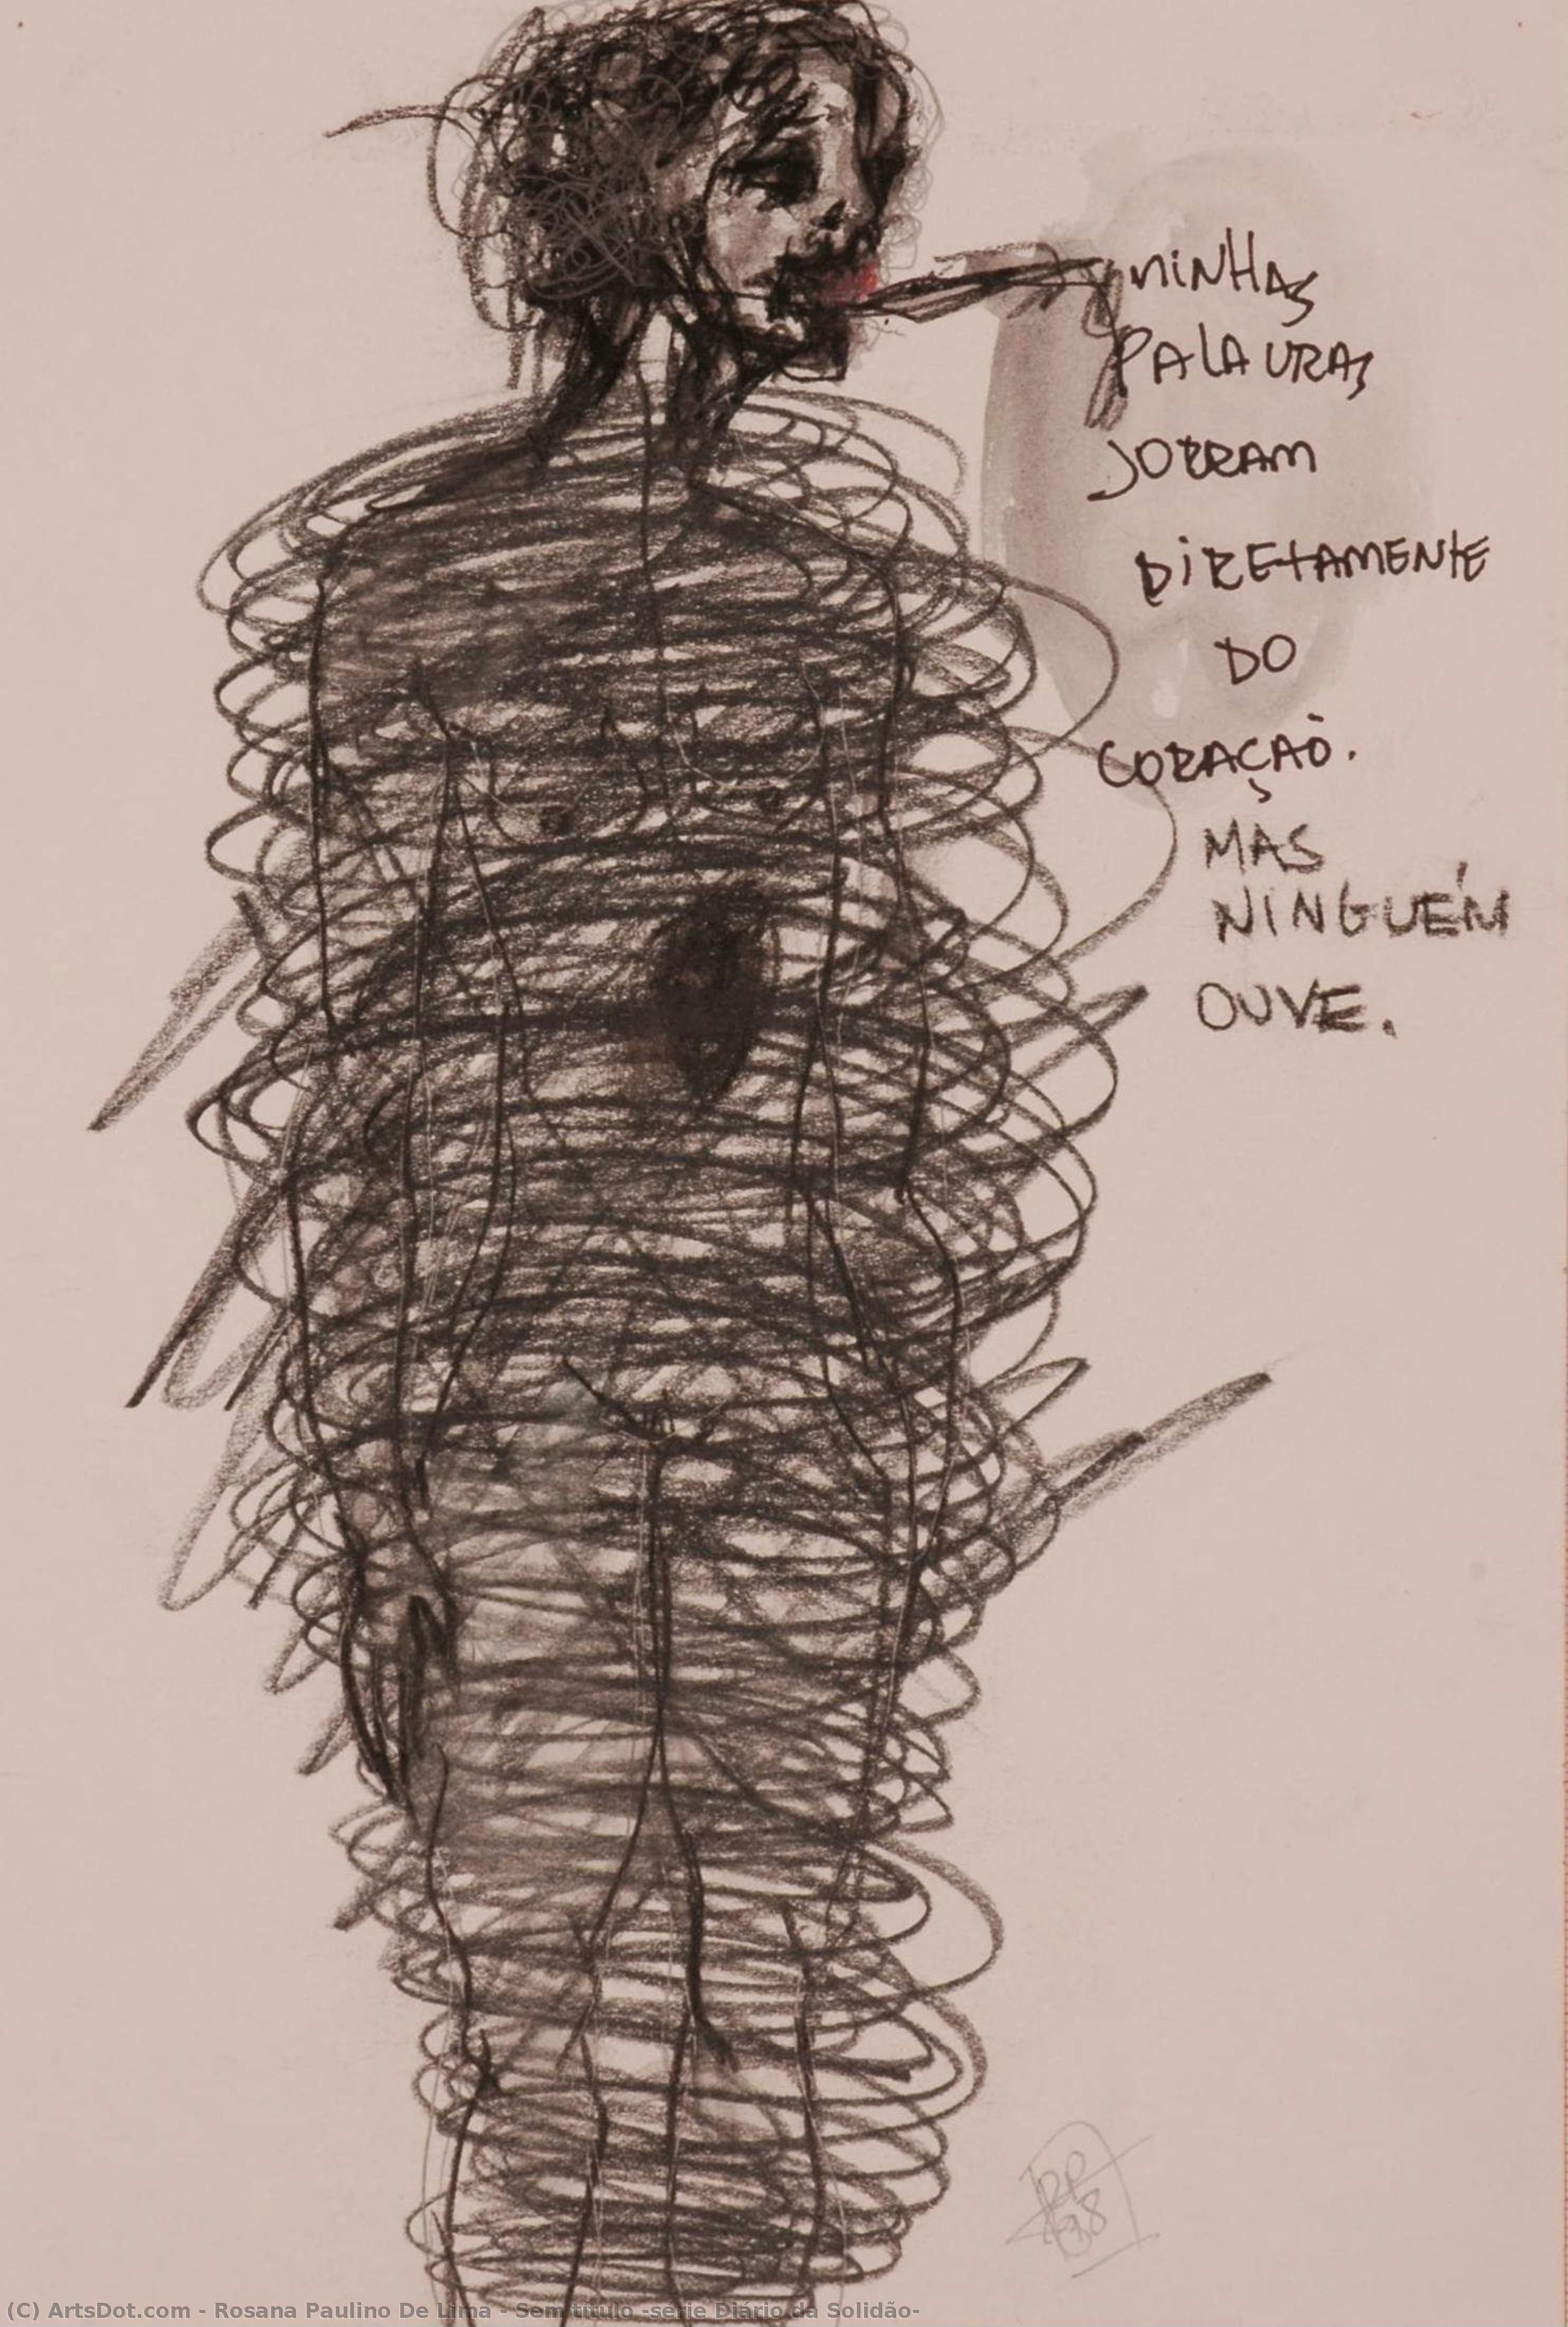 MINHAS
PALAVRAS
JORRAM
DIRETAMENTE
DO
CORAÇÃO.
MAS
NINGUÉM
OUVE.
RP
98
(C) ArtsDot.com - Rosana Paulino De Lima - Sem título -série Diário da Solidão-